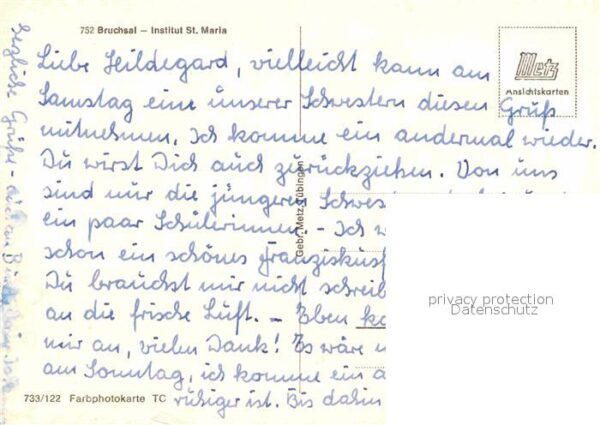 752 Bruchsal — Institut St. Maria
Metz
Ansichtskarten
Liebe Heildegard, vielleicht kann am
Samstag eine unserer Schwestern diesen Gruß
mitnehmen. Ich komme ein andermal wieder.
Du wirst Dich auch zurückziehen. Von uns
sind nur die jüngeren Schwes
ein paar Schülerinnen. - Ich w
schon ein schönes Franziskusf
Du brauchst mir nicht schreib
an die frische Luft. – Eben
mir an, vielen Dank! Es wäre
am Sonntag, ich komme ein a
ruhiger ist. Bis dahin
Herzliche Grüße -
Gebr. Metz, Tübingen
733/122 Farbphotokarte TC
privacy protection
Datenschutz